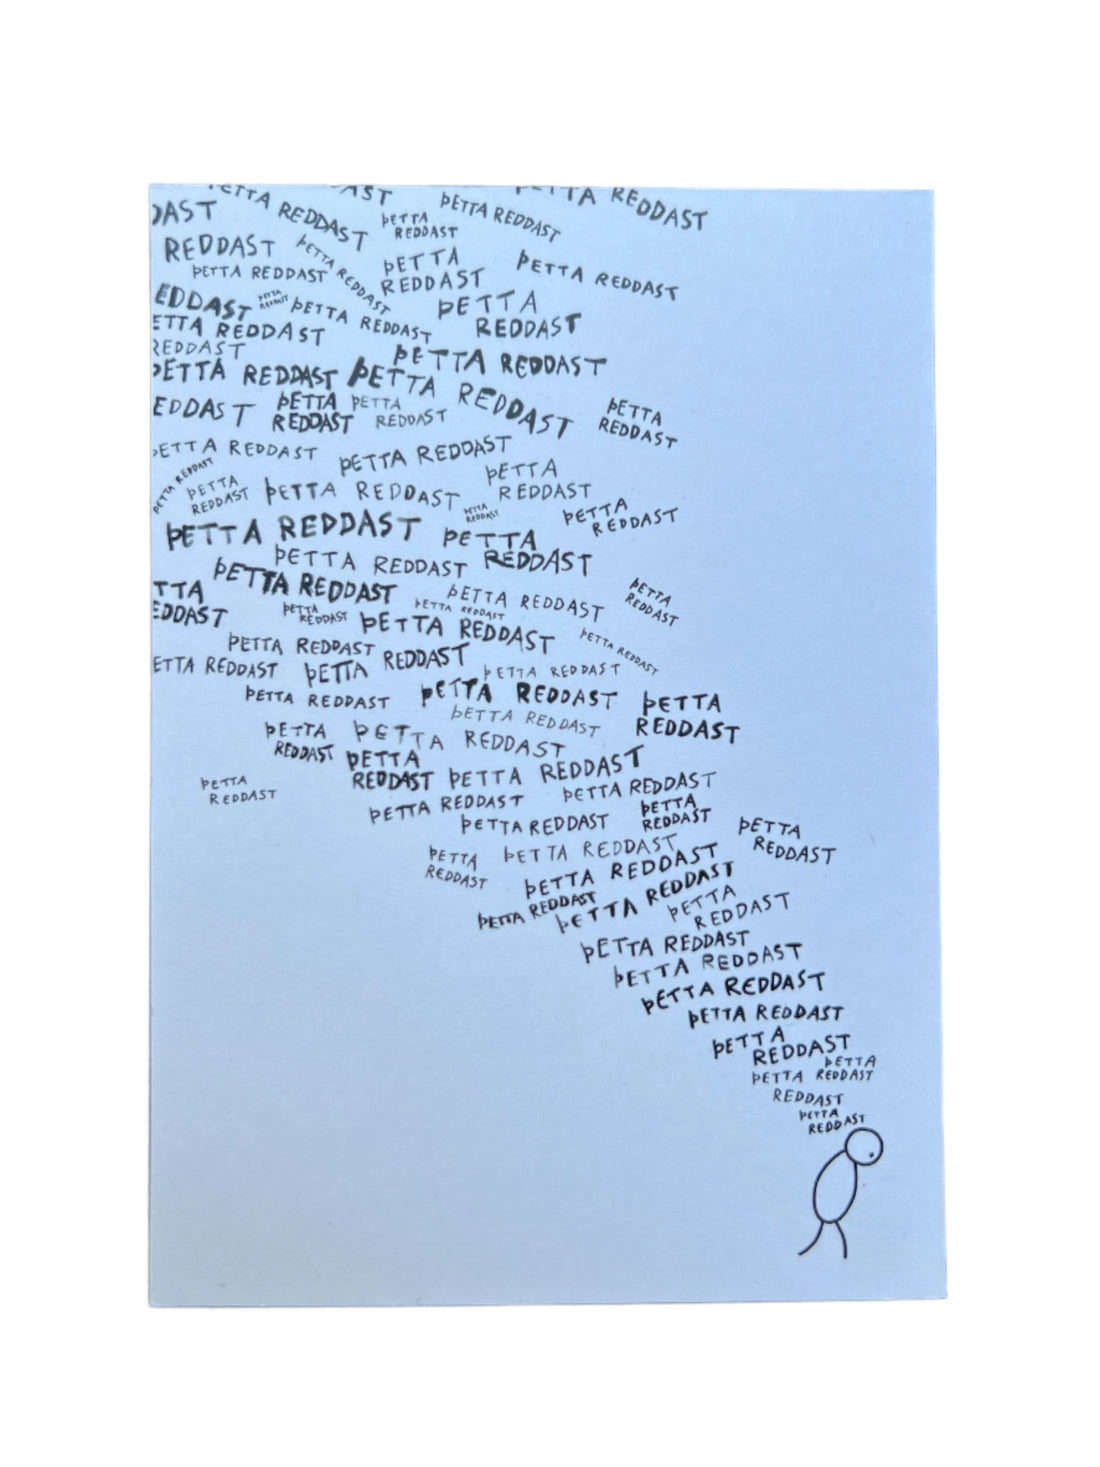 ÞETTA REDDAST
DAST
REDDAST
ÞETTA REDDAST
AST
ÞETTA
REDDAST
ÞETTA REDDAST
ÞETTA REDDAST
ÞETTA REDDAST
ÞETTA REDDAST
ÞETTA
REDDAST
ÞETTA REDDAST
EDDAST
ÞETTA
REDDAST
ÞETTA REDDAST
ÞETTA
REDDAST
ETTA REDDAST
REDDAST
ÞETTA REDDAST
ÞETTA REDDAST
ÞETTA REDDAST
EDDAST
ÞETTA
REDDAST
ÞETTA
REDDAST
ÞETTA
REDDAST
ÞETTA REDDAST
ÞETTA REDDAST
ÞETTA REDDAST
ÞETTA
REDDAST
ÞETTA REDDAST
ÞETTA
REDDAST
ÞETTA
REDDAST
ÞETTA
REDDAST
ÞETTA REDDAST
ÞETTA
REDDAST
ÞETTA REDDAST
ÞETTA REDDAST
TTA
EDDAST
ÞETTA REDDAST
ÞETTA
REDDAST
ÞETTA
REDDAST
ÞETTA REDDAST
ÞETTA REDDAST
ÞETTA REDDAST
ÞETTA REDDAST
ETTA REDDAST
ÞETTA REDDAST
ÞETTA REDDAST
ÞETTA REDDAST
ÞETTA REDDAST
ÞETTA
REDDAST
ÞETTA REDDAST
ÞETTA
REDDAST
ÞETTA REDDAST
ÞETTA
REDDAST
ÞETTA REDDAST
ÞETTA
REDDAST
ÞETTA REDDAST
ÞETTA REDDAST
ÞETTA
REDDAST
ÞETTA REDDAST
ÞETTA
REDDAST
ÞETTA
REDDAST
ÞETTA REDDAST
ÞETTA REDDAST
ÞETTA REDDAST
ÞETTA REDDAST
ÞETTA
REDDAST
ÞETTA REDDAST
ÞETTA REDDAST
ÞETTA REDDAST
ÞETTA REDDAST
ÞETTA
REDDAST
ÞETTA
ÞETTA REDDAST
REDDAST
ÞETTA
REDDAST